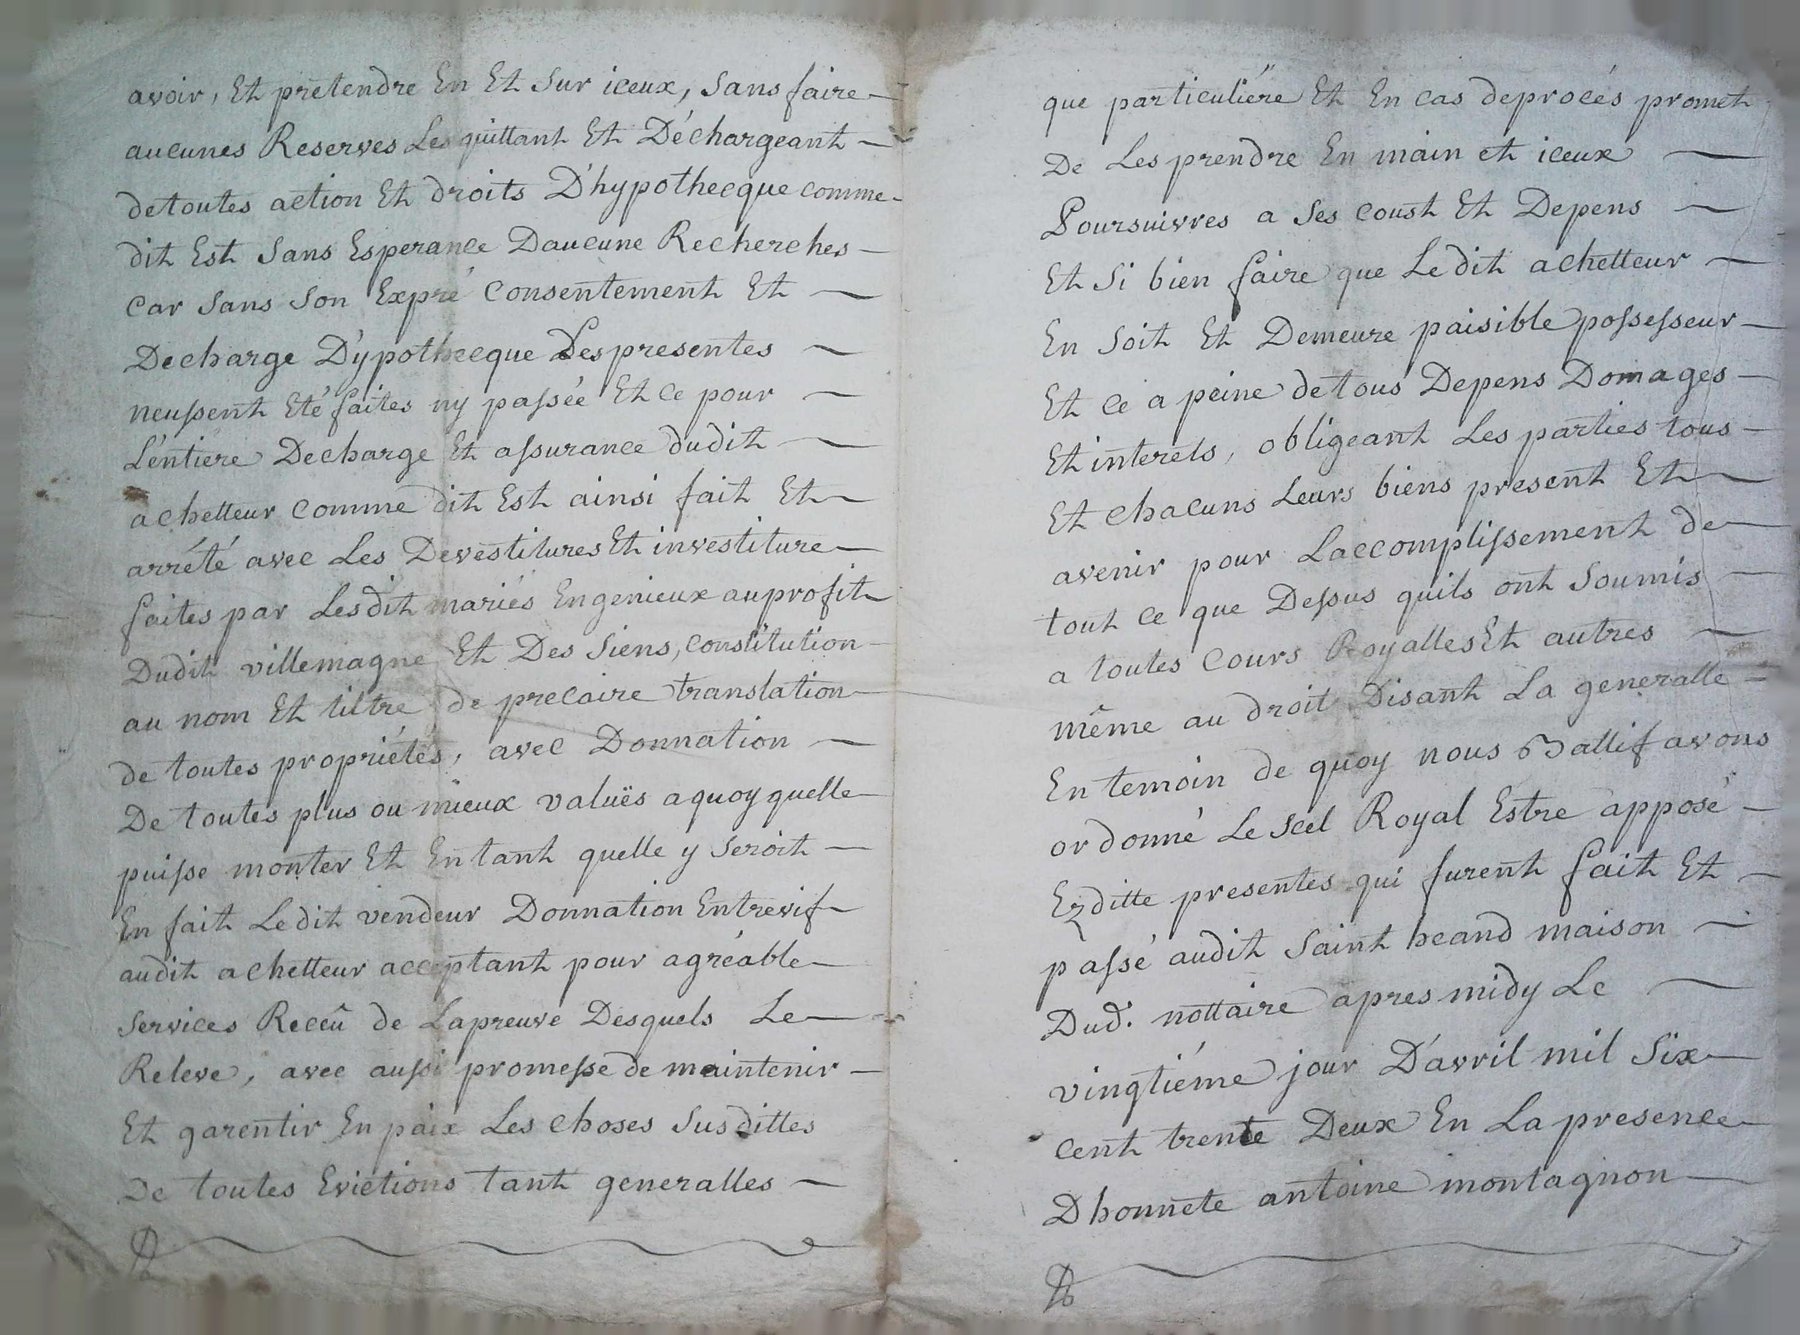 avoir, Et pretendre En Et Sur iceux, Sans faire
aucunes Reserves Les quittant Et Déchargeant
de toutes action Et droits D'hypothecque comme
dit Est Sans Esperance Daucune Recherches
Car Sans Son Expré Consentement Et
Decharge D'ypothecque Des presentes
neussent Eté faites ny passée Et Ce pour
L'entiere Decharge Et assurance dudit
achetteur Comme dit Est ainsi fait Et
arrété avec Les Devestitures Et investiture
faites par Les dit mariés Engenieux au profit
Dudit villemagne Et Des Siens, constitution
au nom Et tiltre de precaire translation
de toutes propriétés, avec Donnation
De toutes plus ou mieux valuës a quoy quelle
puisse monter Et En tant quelle y Seroit
En fait Le dit vendeur Donnation Entrevif
audit achetteur acceptant pour agréable
Services Reçeû de La preuve Desquels Le
Releve, avec aussi promesse de maintenir
Et garentir En paix Les Choses Susdittes
De toutes Evictions tant generalles
que particuliére Et En cas de procés promet
De Les prendre En main et iceux
Poursuivres a Ses Coust Et Depens
Et Si bien faire que Le dit achetteur
En Soit Et Demeure paisible possesseur
Et Ce a peine de tous Depens Domages
Et interets, obligeant Les parties tous
Et Chacuns Leurs biens present Et
avenir pour Laccomplissement de
tout Ce que Dessus quils ont Soumis
a toutes Cours Royalles Et autres
même au droit Disant La generalle
En temoin de quoy nous Ballif avons
ordonné Le Scel Royal Estre apposé
Ezditte presentes qui furent fait Et
passé audit Saint heand maison
Dud. nottaire apres midy Le
vingtiéme jour D'avril mil Six
Cent trente Deux En La presence
Dhonnete antoine montagnon